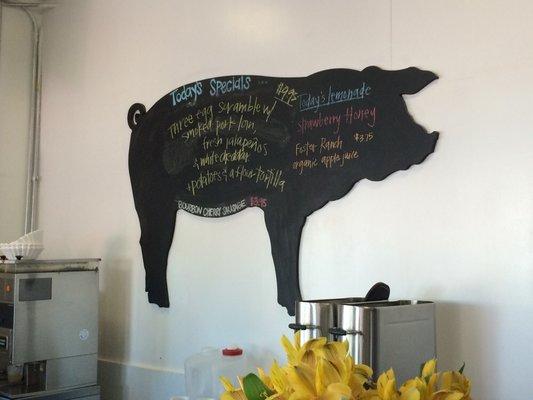 Today's Specials
Three egg scramble w/ $9.95
smoked pork loin,
fresh jalapeños
& white cheddar
+ potatoes & a flour tortilla
BOURBON CHERRY SAUSAGE $3.95
Today's lemonade
strawberry Honey
Foster Ranch $3.75
organic apple juice